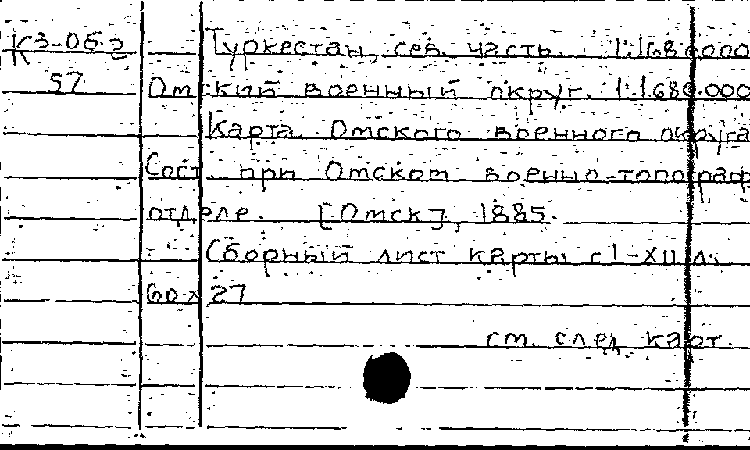 К3-06.2 Туркестан, сев. часть. 1:1680000
57 Омский военный округ. 1:1.680.000
Карта Омского военного округа
Сост. при Омском военно-топограф
отделе. [Омск], 1885.
Сборный лист карты с I-XII л.
60 х 27
см. след. карт.